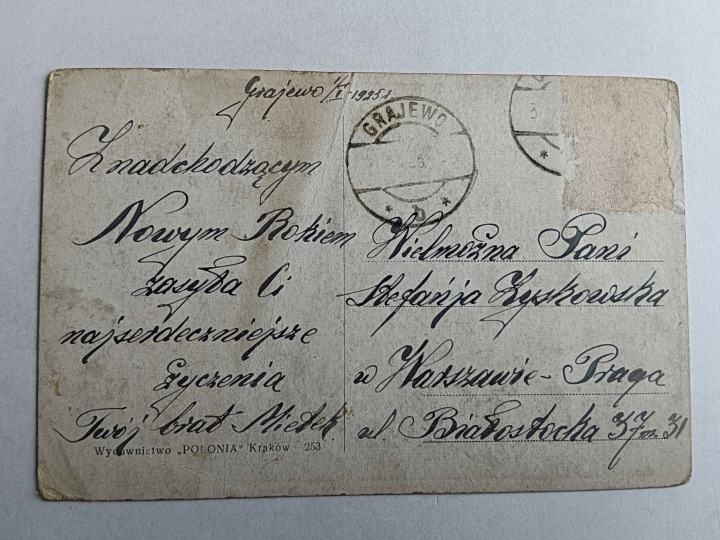 Grajewo 1/I 1925 r.
Z nadchodzącym
Nowym Rokiem
zasyła Ci
najserdeczniejsze
życzenia
Twój brat Mietek
Wydawnictwo „POLONIA” Kraków 253
GRAJEWO
* b *
Wielmożna Pani
Stefańja Zyskowska
w Warszawie - Praga
ul. Białostocka 37 m. 31